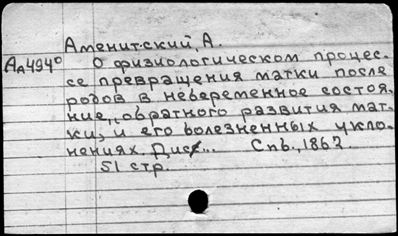 Аменитский, А.
Аа494º О физиологическом процес-
се превращения матки после
родов в небеременное состоя-
ние, обратного развития мат-
ки, и его болезненных укло-
нениях. Дис... Спб., 1862.
51 стр.